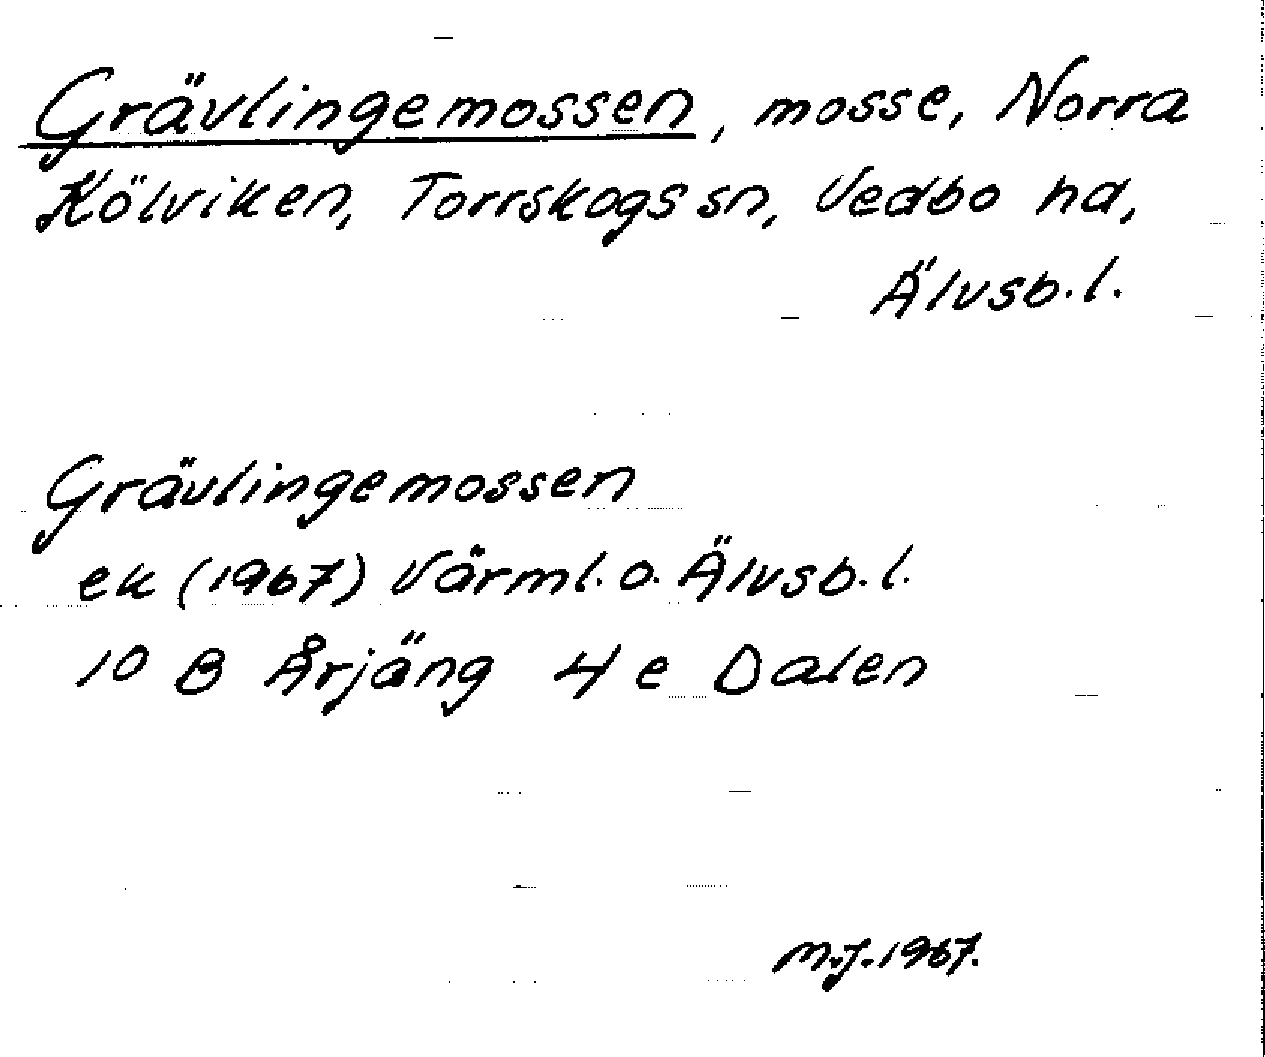 Grävlingemossen, mosse, Norra
Kölviken, Torrskogs sn, Vedbo hd,
Älvsb.l.
Grävlingemossen
ek (1967) Värml. o. Älvsb.l.
10 B Årjäng 4 e Dalen
M.J. 1967.